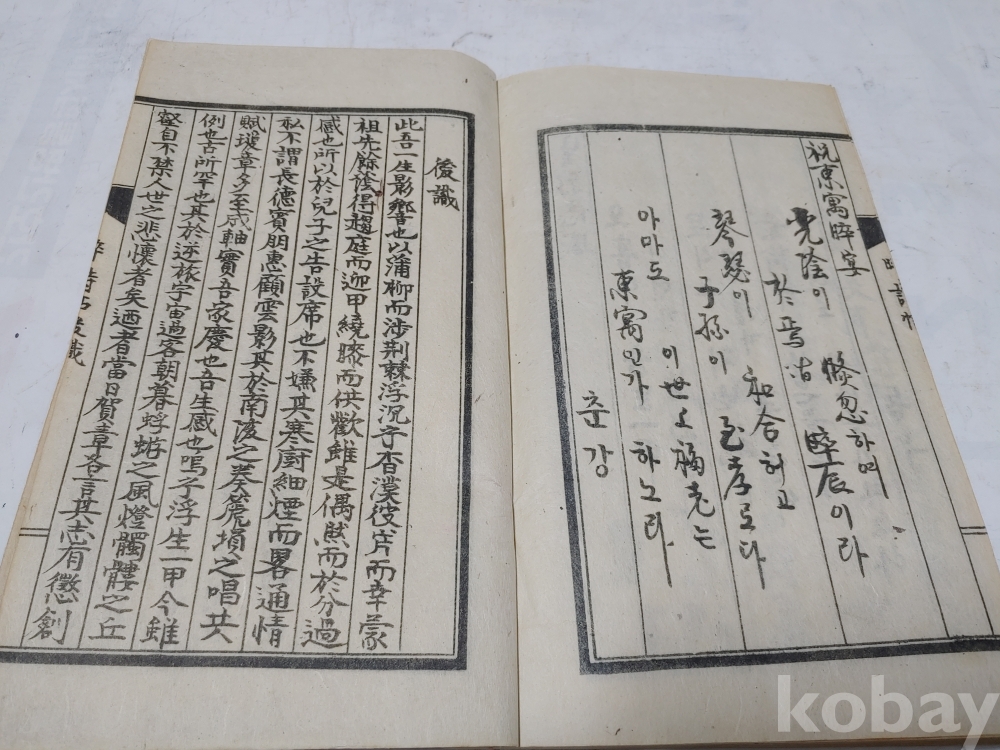 祝東寓晬宴
光陰이 倏忽하며
於焉간 晬辰이라
琴瑟이 和合허고
子孫이 至孝로다
이世上福老는
아마도 東寓인가 하노라
춘강
後識
此吾一生影響也以蒲柳而涉荆棘浮沉于杳漠彼岸而幸蒙
祖先餘蔭得趨庭而迎甲繞膝而供歡雖是偶然而於分過
感也所以於兒子之告設席也不嫌其寒廚細煙而畧通情
私不謂長德賓朋惠顧雲影其於南陔之奏篪塤之唱共
賦瓊章多至成軸實吾家慶也吾生感也嗚乎浮生一甲今雖
例也古所罕也其於逆旅宇宙過客朝暮蜉蝣之風燈髑髏之丘
壑自不禁人世之悲懷者矣迺者當日賀章各言其志有懲創
kobay